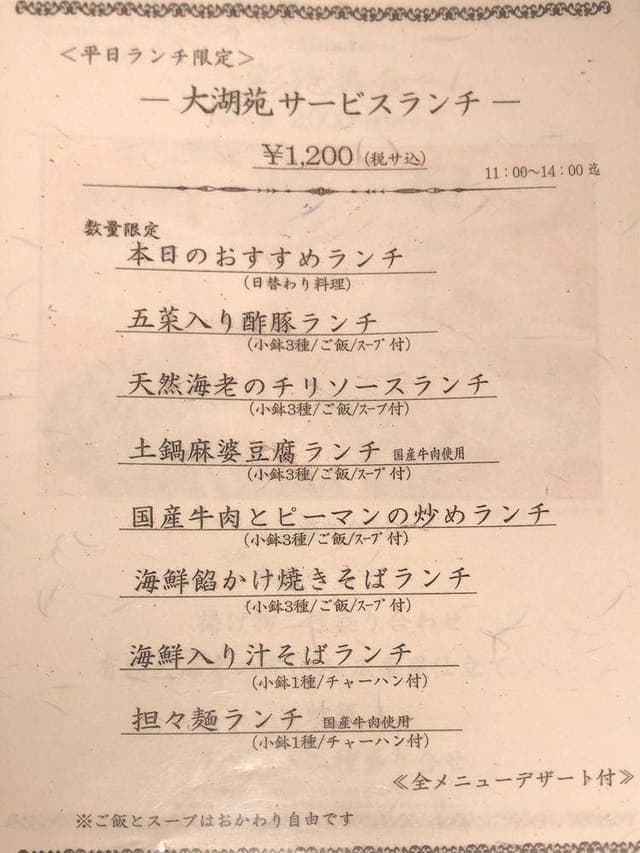 ＜平日ランチ限定＞
― 大湖苑 サービスランチ ―
￥1,200 (税サ込)
11：00～14：00 迄
数量限定
本日のおすすめランチ
（日替わり料理）
五菜入り酢豚ランチ
（小鉢3種/ご飯/ｽｰﾌﾟ付）
天然海老のチリソースランチ
（小鉢3種/ご飯/ｽｰﾌﾟ付）
土鍋麻婆豆腐ランチ 国産牛肉使用
（小鉢3種/ご飯/ｽｰﾌﾟ付）
国産牛肉とピーマンの炒めランチ
（小鉢3種/ご飯/ｽｰﾌﾟ付）
海鮮餡かけ焼きそばランチ
（小鉢3種/ご飯/ｽｰﾌﾟ付）
海鮮入り汁そばランチ
（小鉢1種/チャーハン付）
担々麺ランチ 国産牛肉使用
（小鉢1種/チャーハン付）
≪全メニューデザート付≫
※ご飯とスープはおかわり自由です